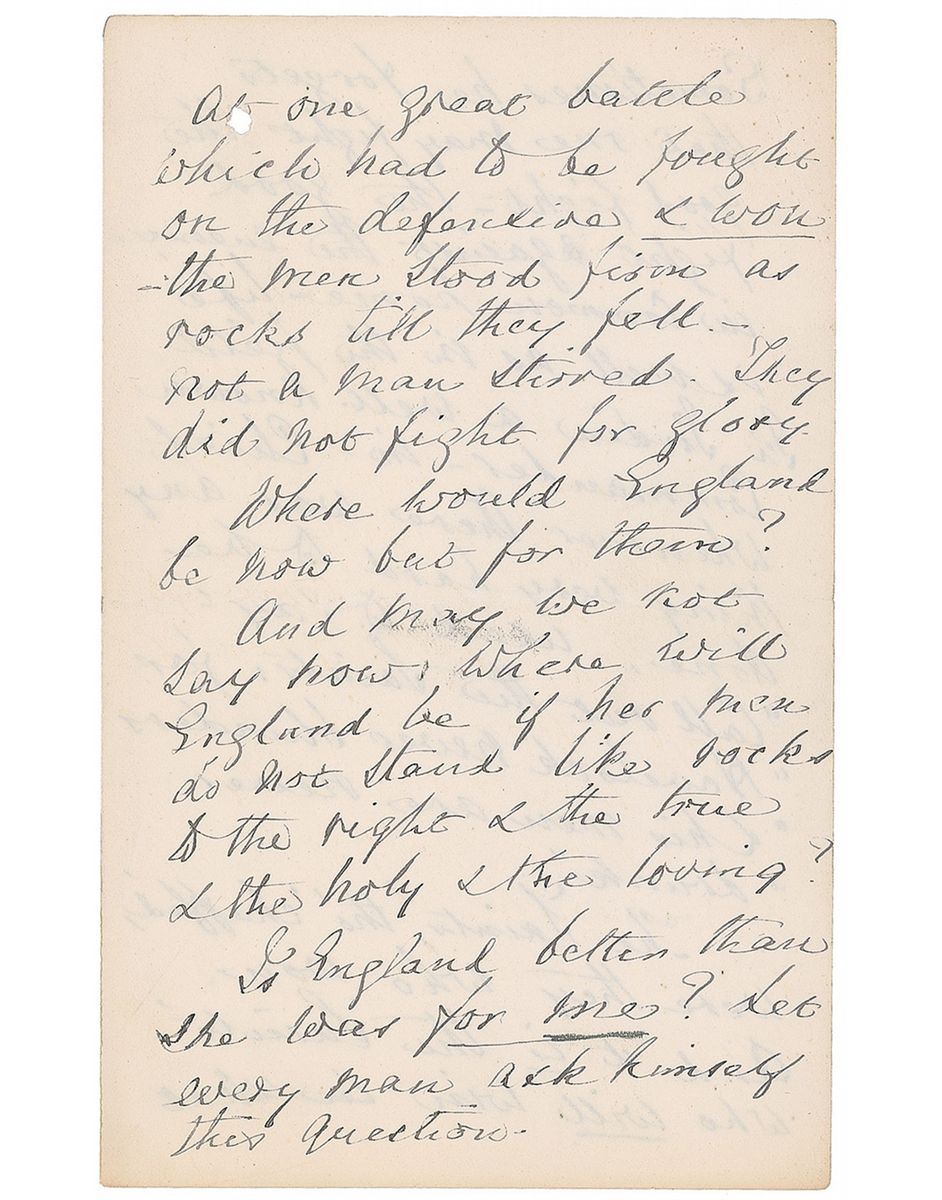 At one great battle
which had to be fought
on the defensive & won
- the men stood firm as
rocks till they fell. -
not a man stirred. They
did not fight for glory.
Where would England
be now but for them?
And may we not
say now: Where will
England be if her men
do not stand like rocks
to the right & the true
& the holy & the loving?
Is England better than
she was for me? Let
every man ask himself
this question.